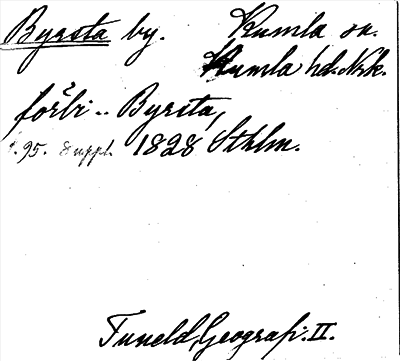 Byrsta by. Kumla sn.
Kumla hd. Nrk.
förbi .. Byrsta,
s. 95. Suppl. 1828 Sthlm.
Tuneld, Geografi. II.